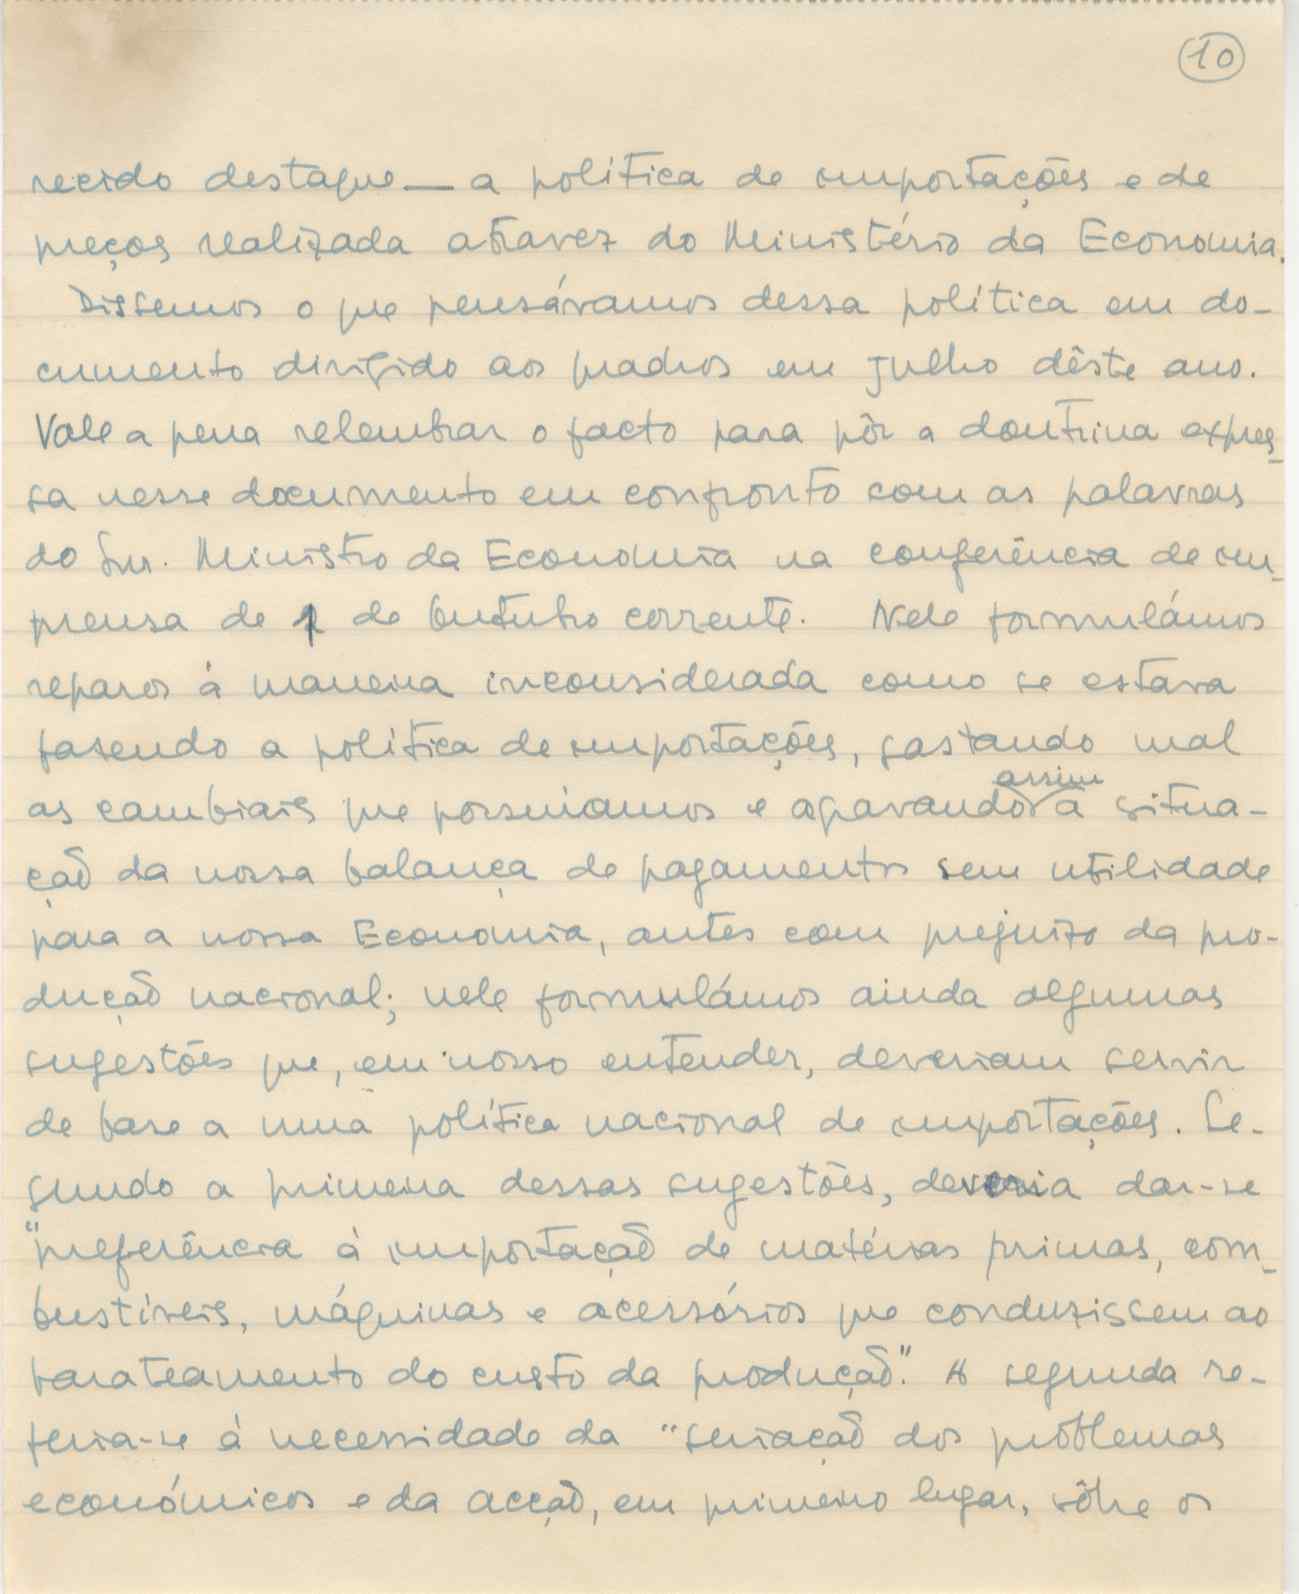 10
recido destaque — a política de importações e de
preços realizada atravez do Ministério da Economia.
Dissemos o que pensávamos dessa política em do-
cumento dirigido aos quadros em Julho dêste ano.
Vale a pena relembrar o facto para pôr a doutrina expres-
sa nesse documento em confronto com as palavras
do Snr. Ministro da Economia na conferência de im-
prensa de 1 de Outubro corrente. Nele formulámos
reparos á maneira inconsiderada como se estava
fasendo a política de importações, gastando mal
as cambiais que possuiamos e agravando assim a situa-
ção da nossa balança de pagamentos sem utilidade
para a nossa Economia, antes com prejuizo da pro-
dução nacional; nele formulámos ainda algumas
sugestões que, em nosso entender, deveriam servir
de base a uma política nacional de importações. Se-
gundo a primeira dessas sugestões, deveria dar-se
"preferência á importação de matérias primas, com-
bustíveis, máquinas e acessórios que conduzissem ao
barateamento do custo da produção". A segunda re-
feria-se á necessidade da "seriação dos problemas
económicos e da acção, em primeiro lugar, sôbre os